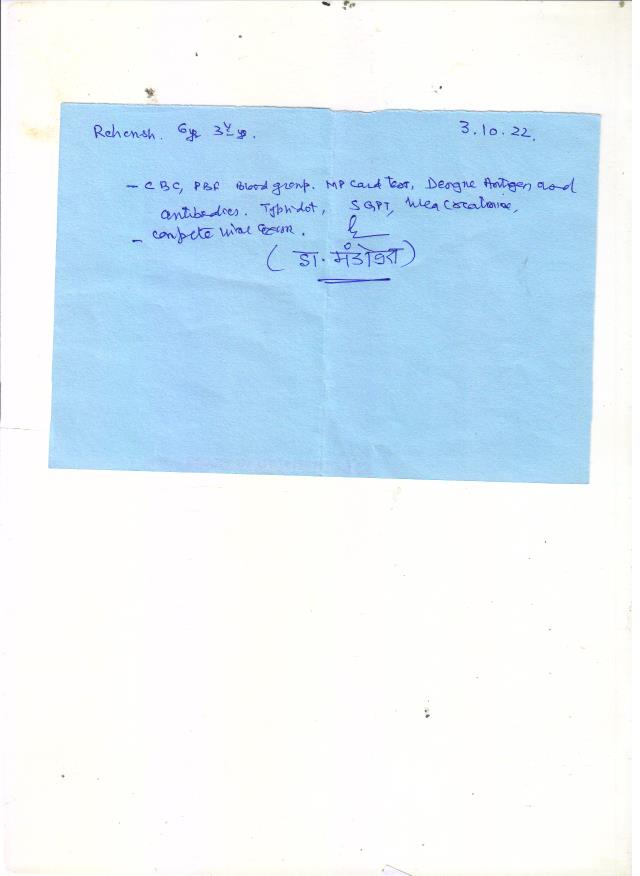 Rehensh. 6yr 3½ yr. 3.10.22.
- CBC, PBF Blood group. MP Card Test, Dengue Antigen and
antibodies. Typhidot, SGPT, Urea Creatinine,
- Complete Urine Exam.
(डा. मंडोवरा)